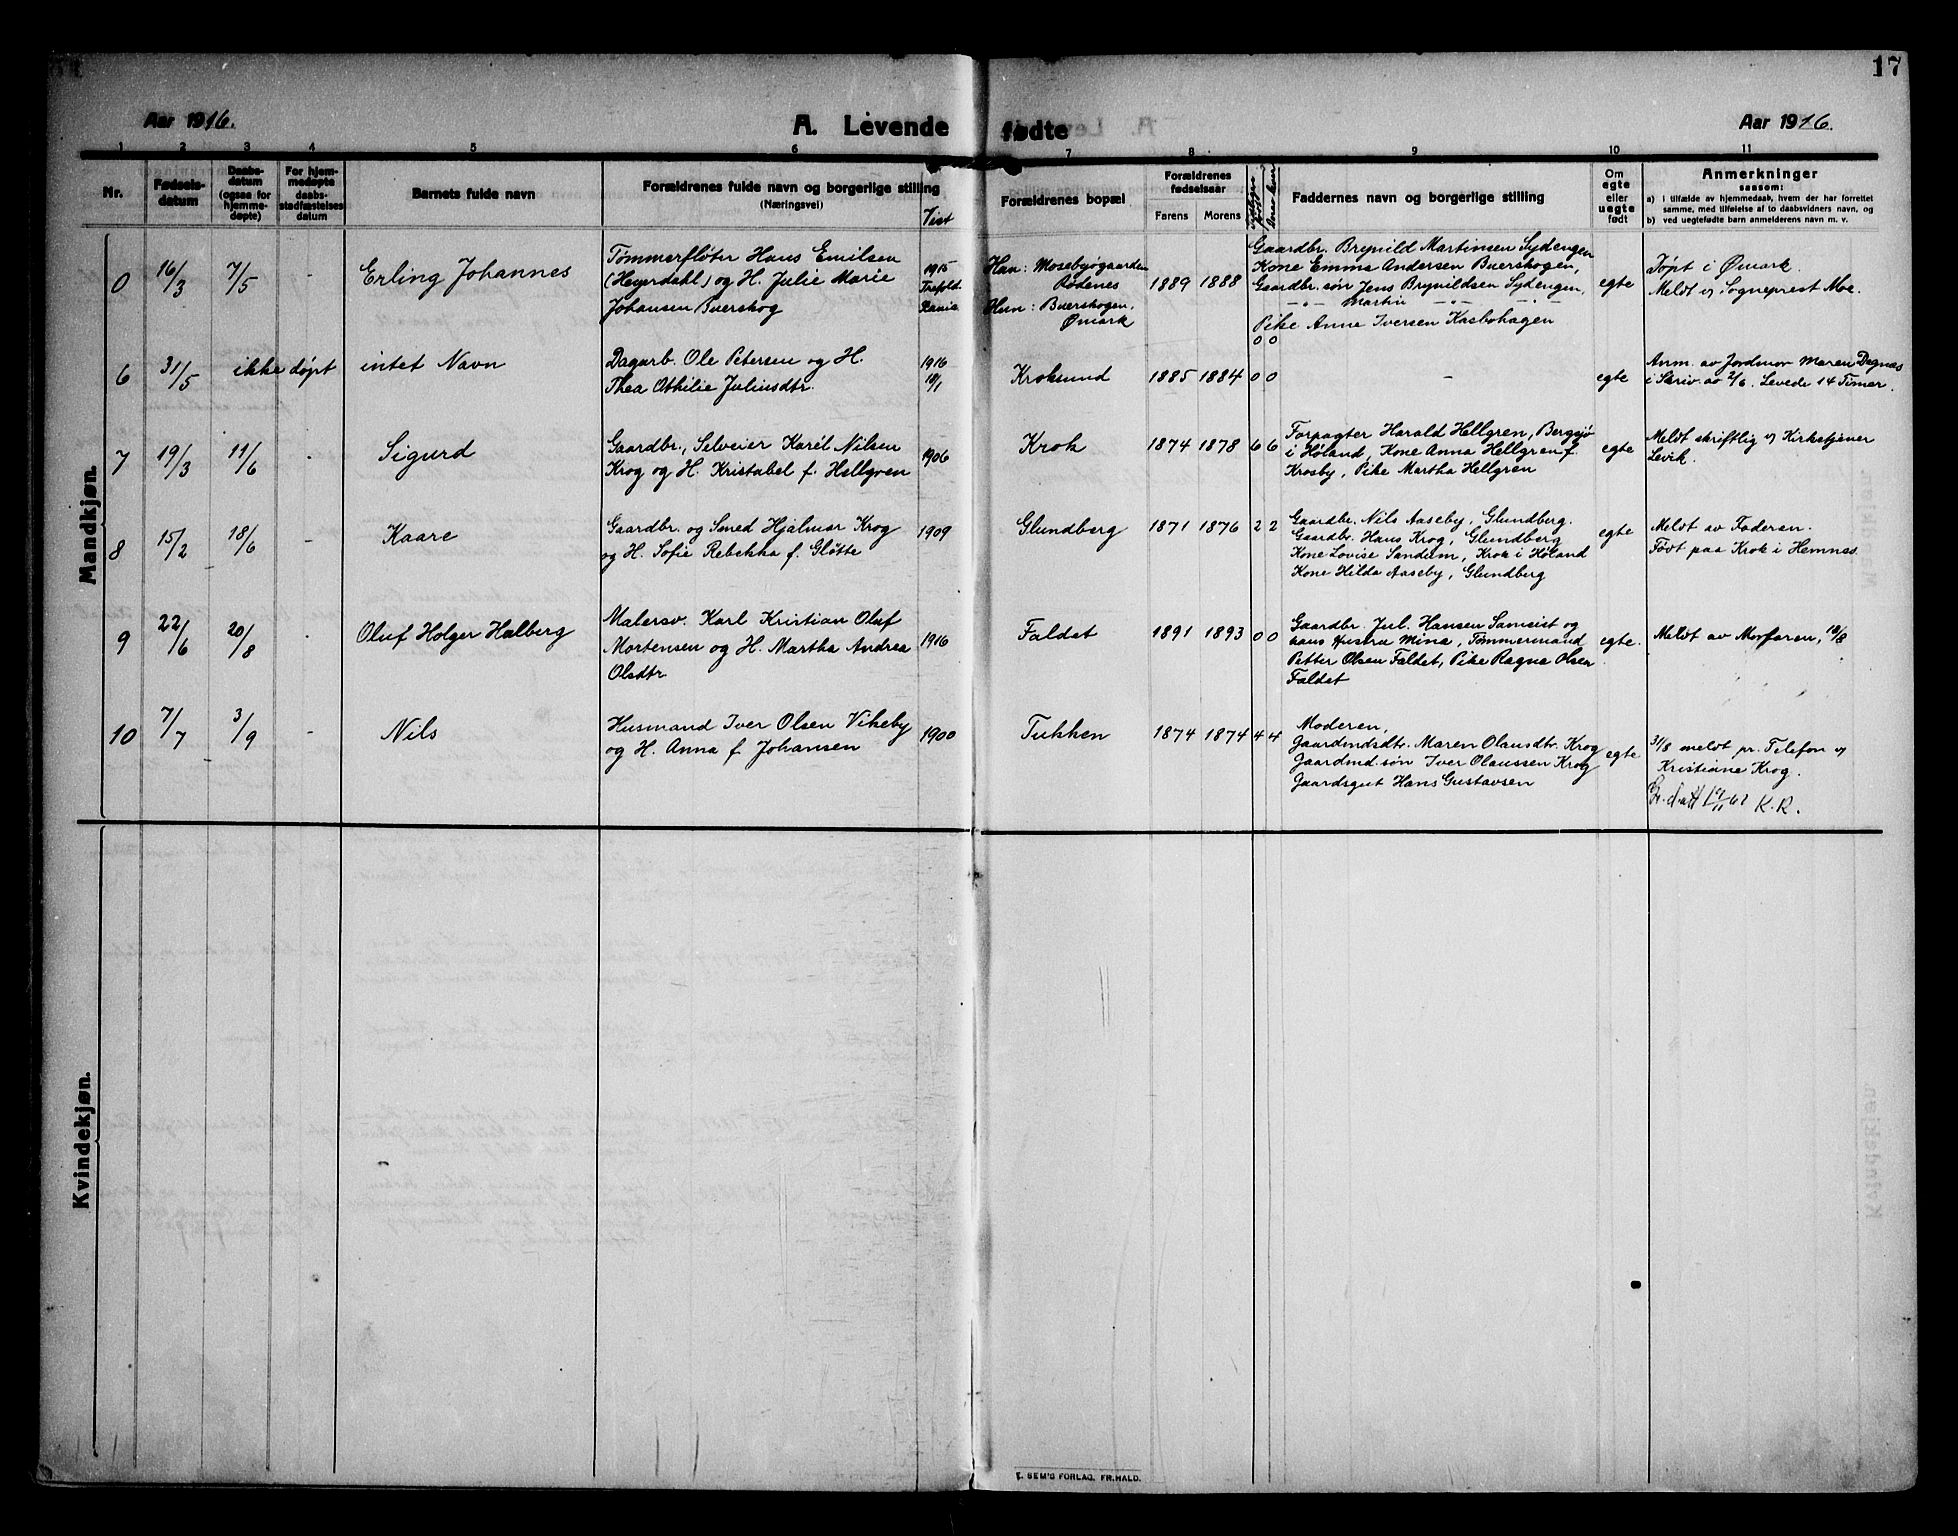 17
Aar 1916.
A. Levende fødte
Aar 1916.
1 2 3 4 5 6 7 8 9 10 11
Nr.
Fødsels-
datum
Daabs-
datum
(ogsaa for
hjemme-
døpte)
For hjem-
medøpte
daabs-
stadfæstelses
datum
Barnets fulde navn
Forældrenes fulde navn og borgerlige stilling
(Næringsvei)
Viet
Forældrenes bopæl
Forældrenes
fødselsaar
Farens
Morens
Faddernes navn og borgerlige stilling
Om
egte
eller
uegte
født
Anmerkninger
saasom:
a) i tilfælde av hjemmedaab, hvem der har forrettet
samme, med tilføielse af to daabsvidners navn, og
b) ved uegtefødte barn anmelderens navn m. v.
Mandkjøn.
0 16/3 7/5 - Erling Johannes
Tømmerfløter Hans Emilsen
(Heyerdahl) og H. Julie Marie
Johansen Buerskog
1915
Han: Mosebyøgaarden
Rødenes
Hun: Buerskogen,
Ømark
1889 1888
Gaardbr. Brynild Martinsen Sydengen
Kone Emma Andersen Buerskogen,
Gaardbr. søn Jens Brynildsen Sydengen,
-"- Martin -"- -"-
Pike Anna Iversen Kasbohagen
0 0
egte
Døpt i Ømark.
Meldt v/ Sogneprest Moe.
6 31/5 ikke døpt intet Navn
Dagarb. Ole Petersen og H.
Thea Othilie Juliusdtr.
1916
Kroksund
1885 1884 0 0
-
egte
Anm. av Jordmor Maren Dagnæs
i Skriv. av 2/6. Levede 14 Timer.
7 19/3 11/6 - Sigurd
Gaardbr., Selveier Karél Nilsen
Krog og H. Kristabel f. Hellgren
1906
Krok
1874 1878 6 6
Forpagter Harald Hellgren, Bergsjø
i Høland, Kone Anna Hellgren f.
Krosby, Pike Martha Hellgren
egte
Meldt skriftlig v/ Kirketjener
Levik.
8 15/2 18/6 - Kaare
Gaardbr. og Smed Hjalmar Krog
og H. Sofie Rebekka f. Gløtte
1909
Glundberg
1871 1876 2 2
Gaardbr. Nils Aaseby, Glundberg.
Gaardbr. Hans Krog, Glundberg
Kone Lovise Sandem, Krok i Høland
Kone Hilda Aaseby, Glundberg
egte
Meldt av Faderen.
Født paa Krok i Hemnes.
9 22/6 20/8 - Oluf Holger Halberg
Malersv. Karl Kristian Oluf
Mortensen og H. Martha Andrea
Olsdtr
1916
Faldet
1891 1893 0 0
Gaardbr. Jul. Hansen Samsist og
hans Hustru Mina, Tømmermand
Petter Olsen Faldet, Pike Ragna Olsen
Faldet
egte.
Meldt av Morfaren, 18/8
10 7/7 3/9 - Nils
Husmand Iver Olsen Vikeby
og H. Anna f. Johansen
1900
Tukken
1874 1874 4 4
Moderen,
Gaardmdsdtr. Maren Olausdtr. Krog
Gaardmd. søn Iver Olaussen Krog
Gaardsgut Hans Gustavsen
egte
31/8 meldt pr. Telefon v/
Kristiane Krog.
K.R.
Kvindekjøn.
E. SEM'S FORLAG, FR.HALD.